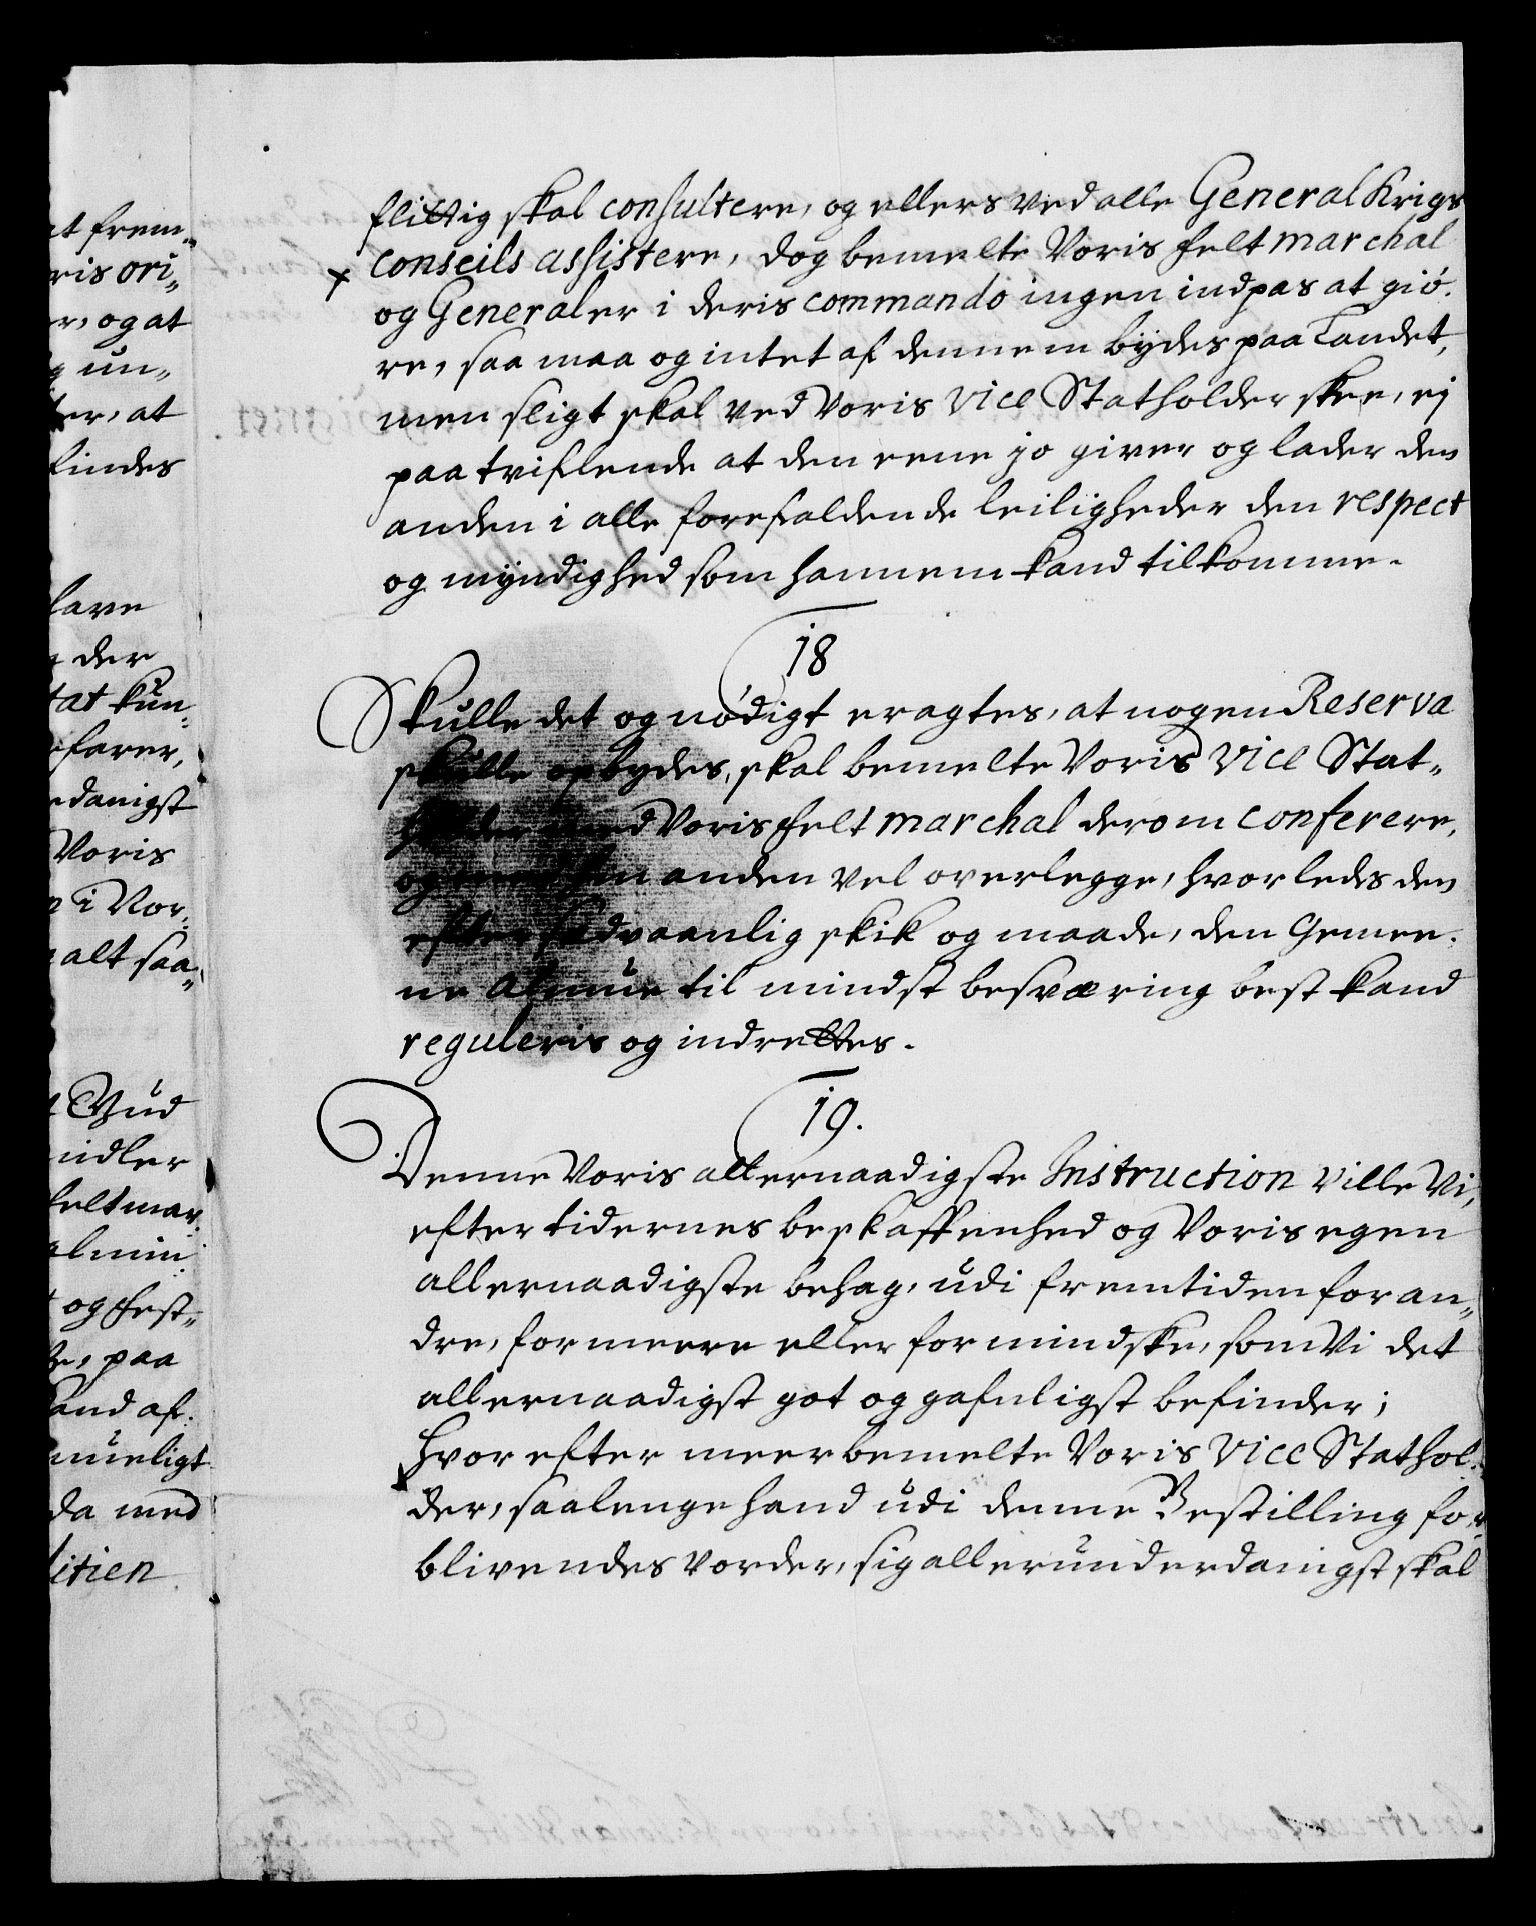 at frem„
ris ori„
r, og at
g un„
ter, at
findes
have
der
tat kun„
farer,
danigst
Voris
i Nor„
alt saa„
Bud
indler
feltmar„
almin„
og Fest„
paa
Land af„
mueligt
da med
litien
flittig skal consultere, og ellers ved alle General Krigs
x conseils assistere, dog bemelte Voris Felt marchal
og Generaler i deris commando ingen indpas at giö„
re, saa maa og intet af dennem bydes paa Landet,
men sligt skal ved Voris Vice Statholder skee, ej
paa tviflende at den eene jo giver og lader den
anden i alle forefaldende leiligheder den respect
og myndighed som hannem kand tilkomme.
18
Skulle det og nödigt eragtes, at nogen Reserva
skulle opbydes, skal bemelte Voris Vice Stat„
holder med Voris Felt marchal derom conferere,
og med hin anden vel overlegge, hvorledes den
efter sædvaanlig skik og maade, den Gemee„
ne Almue til mindst besværing best kand
reguleris og indrettes.
19.
Denne Voris allernaadigste Instruction ville Vi,
efter tidernes beskaffenhed og Voris egen
allernaadigste behag, udi fremtiden foran„
dre, formeere eller formindske, som Vi det
allernaadigst got og gafnligst befinder;
Hvorefter meerbemelte Voris Vice Stathol„
der, saalenge hand udi denne Bestilling for„
blivendes vorder, sig allerunderdanigst skal